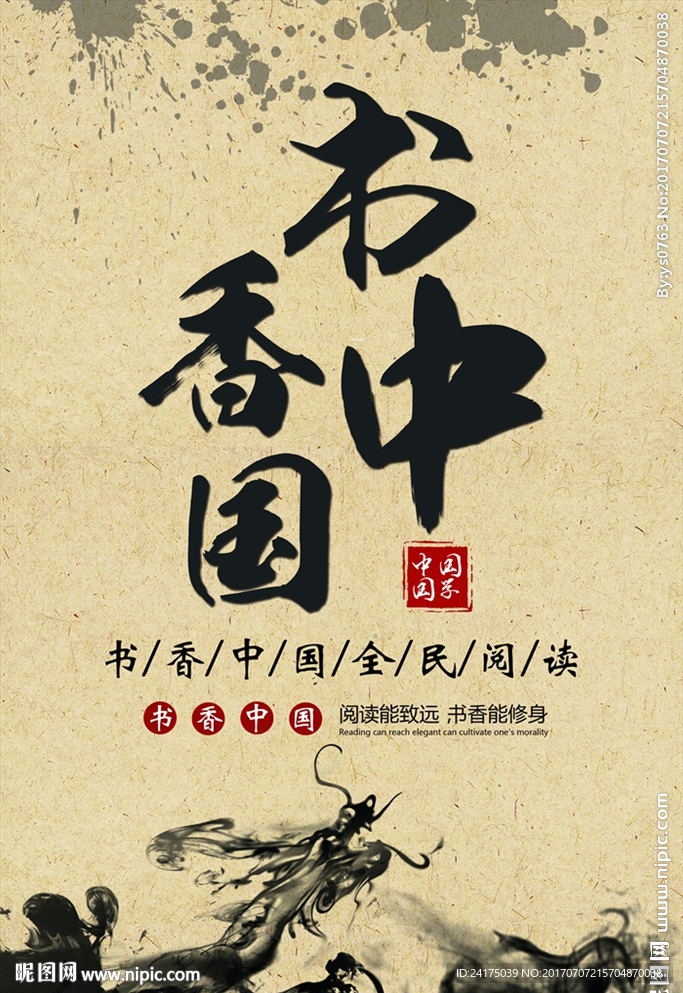 书香中国
中国国学
书/香/中/国/全/民/阅/读
书香中国
阅读能致远 书香能修身
Reading can reach elegant can cultivate one's morality
By:ys0763 No:20170707215704870038
www.nipic.com
昵图网
昵图网 www.nipic.com
ID:24175039 NO:20170707215704870038